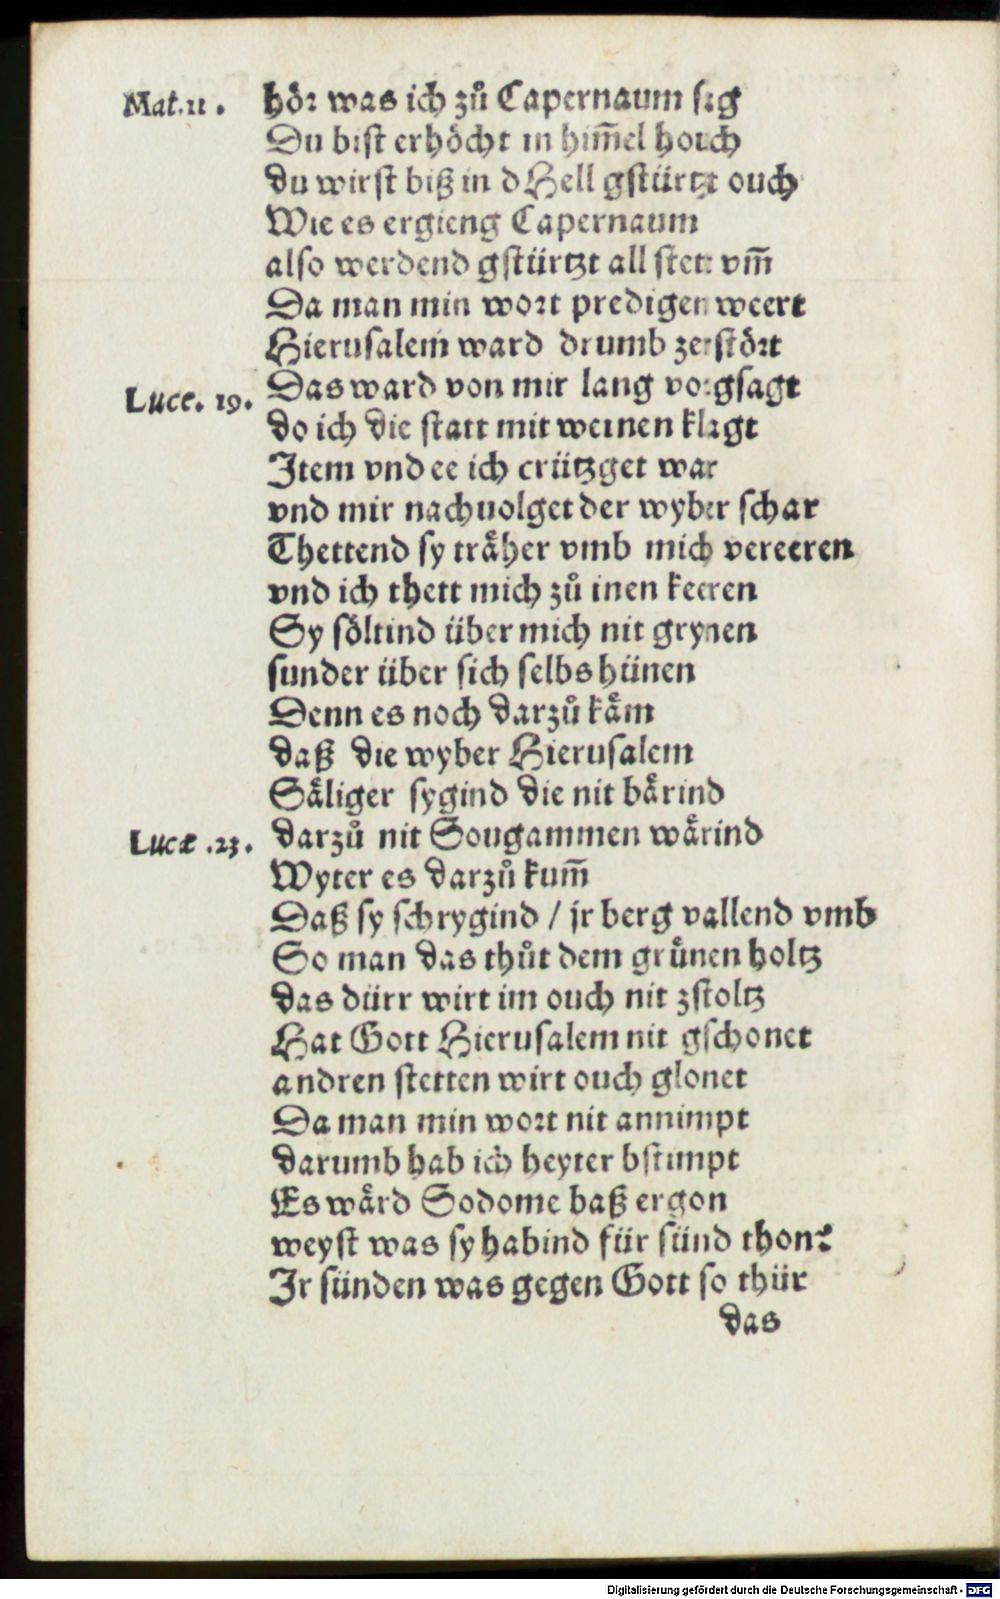 Mat.11. hör was ich zů Capernaum sag
Du bist erhöcht in him̅el hoich
du wirst biß in d Hell gstürtzt ouch
Wie es ergieng Capernaum
also werdend gstürtzt all stett vm̅
Da man min wort predigen weert
Hierusalem ward drumb zerstört
Das ward von mir lang vorgsagt
Luce. 19. do ich die statt mit weinen klagt
Item vnd ee ich crützget war
vnd mir nachuolget der wyber schar
Thettend sy träher vmb mich vereeren
vnd ich thett mich zů inen keeren
Sy söltind über mich nit grynen
sunder über sich selbs hünen
Denn es noch darzů käm
daß die wyber Hierusalem
Säliger sygind die nit bärind
Luce .23. darzů nit Sougammen wärind
Wyter es darzů kum̅
Daß sy schrygind / jr berg vallend vmb
So man das thůt dem grůnen holtz
das dürr wirt im ouch nit zstoltz
Hat Gott Hierusalem nit gschonet
andren stetten wirt ouch glonet
Da man min wort nit annimpt
darumb hab ich heyter bstimpt
Es wärd Sodome baß ergon
weyst was sy habind für sünd thon?
Ir sünden was gegen Gott so thür
das
Digitalisierung gefördert durch die Deutsche Forschungsgemeinschaft - DFG